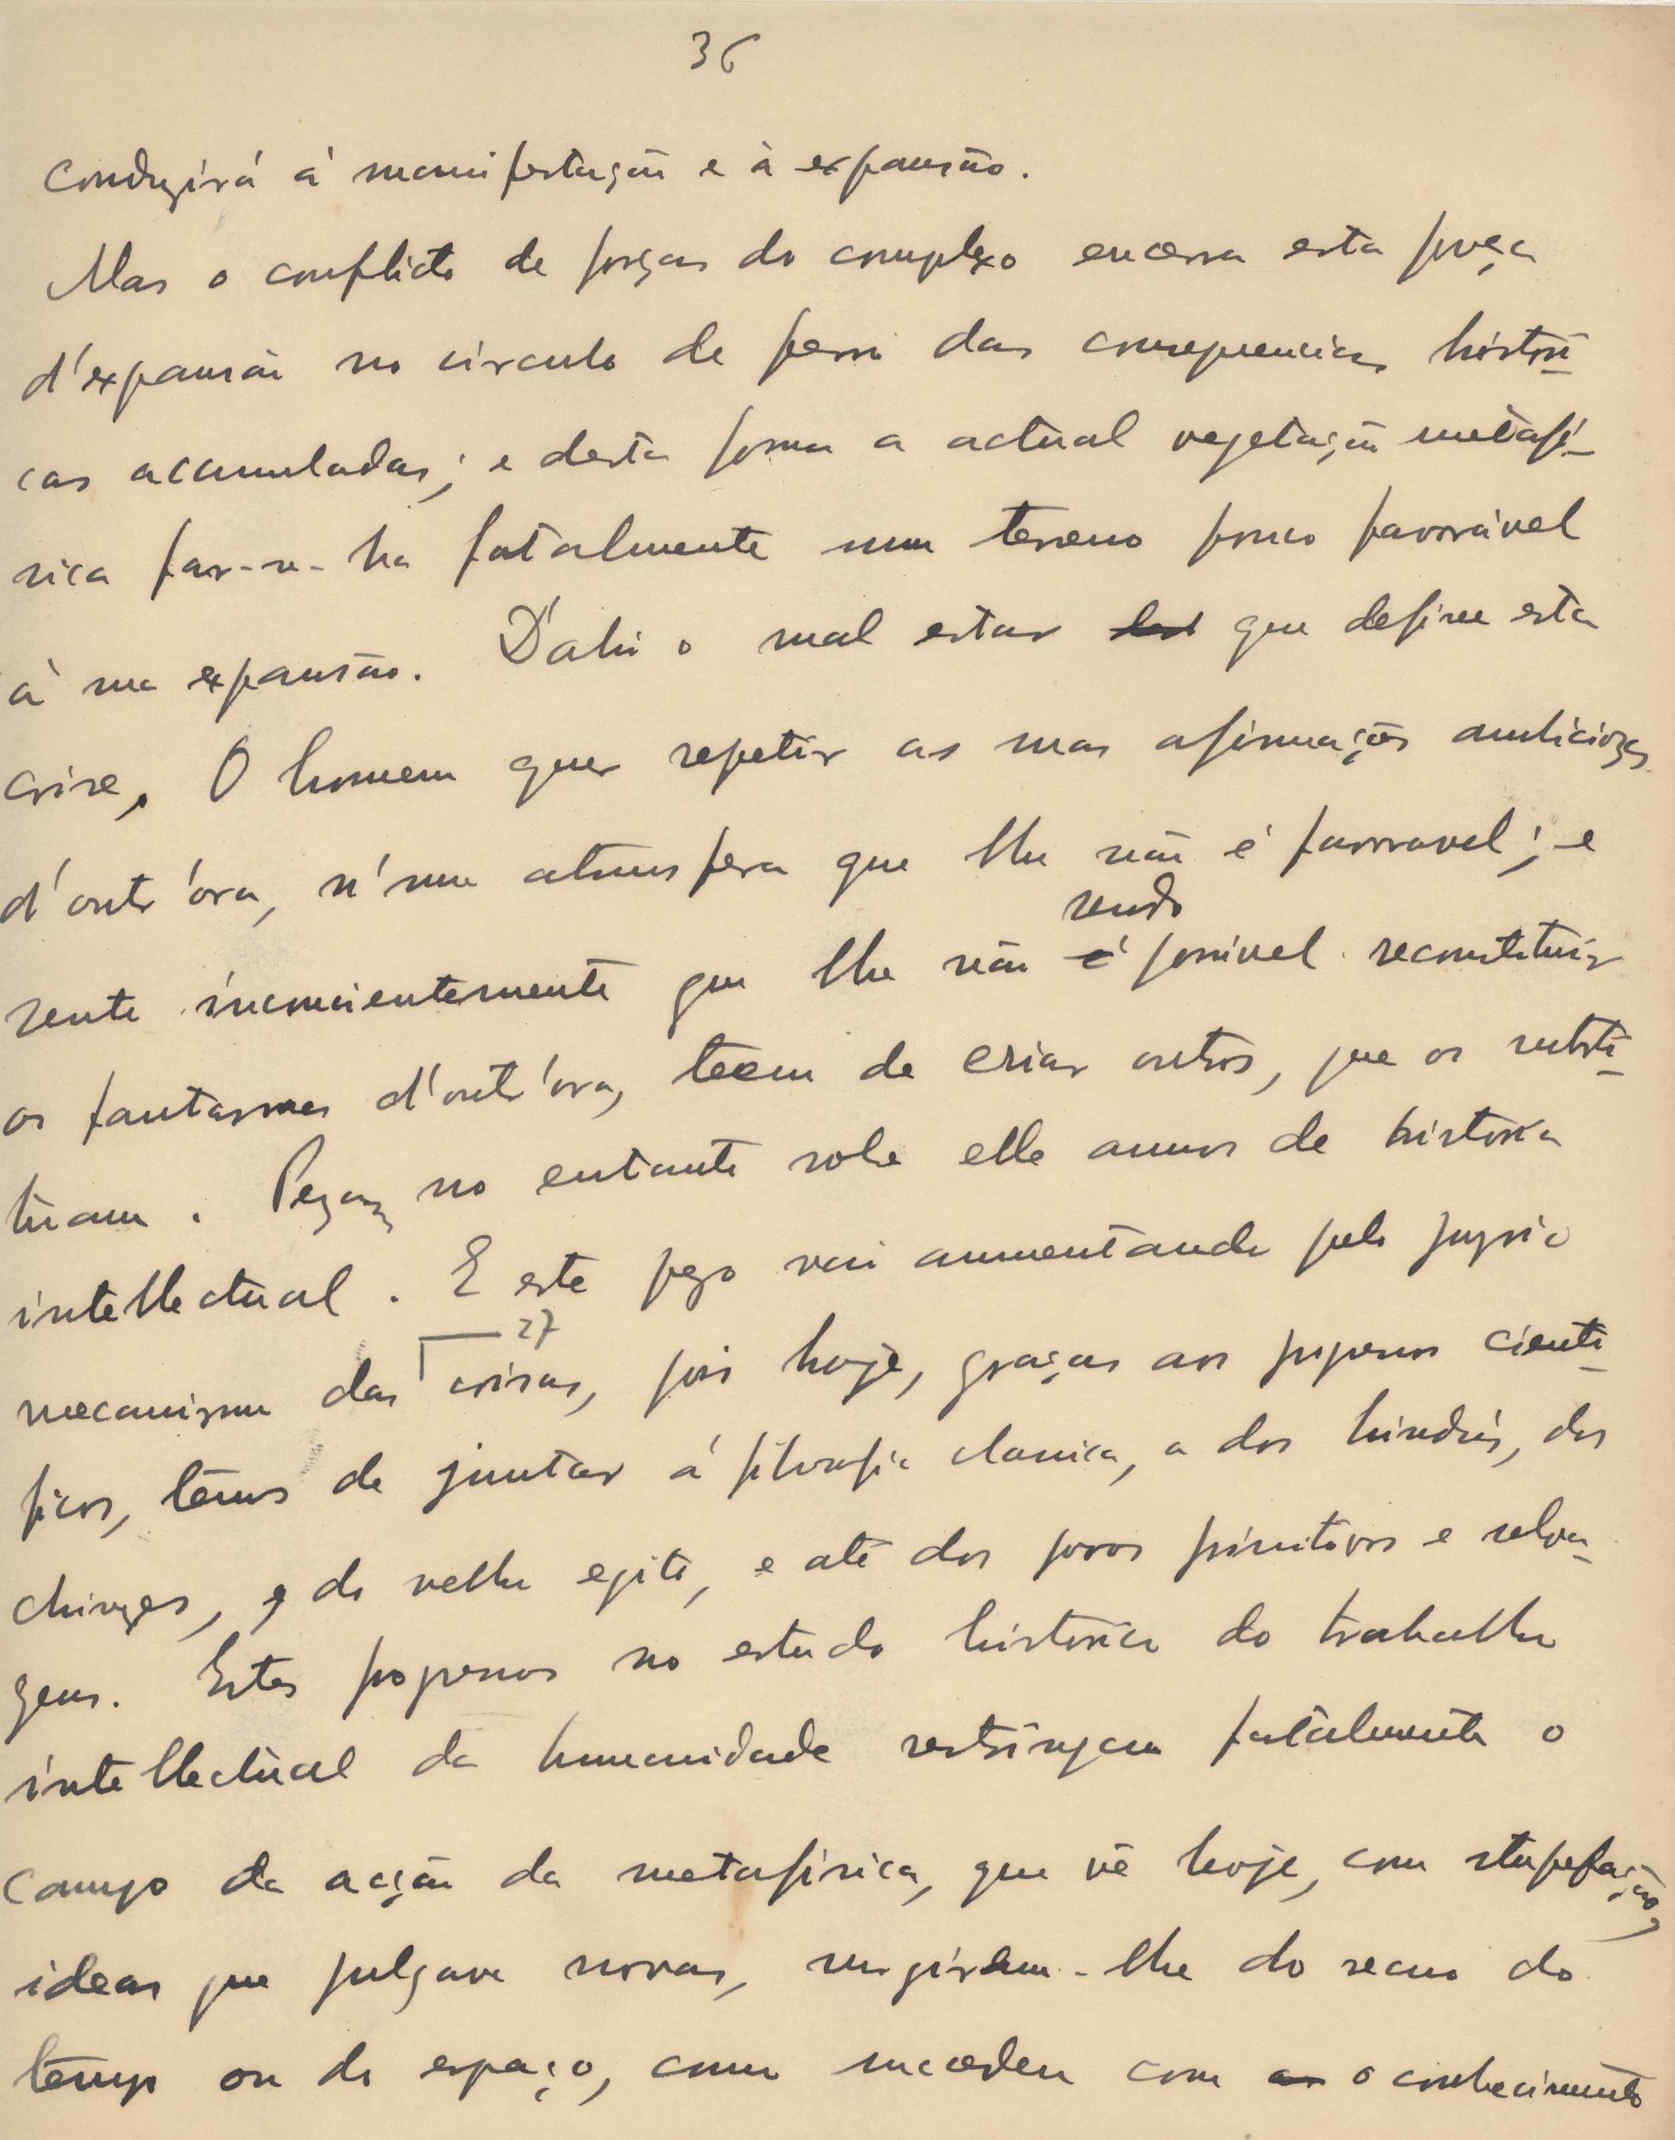 36
conduzirá á manifestação e à expansão.
Mas o conflicto de forças do complexo encerra esta força
d'expansão no circulo de ferro das consequencias histori-
cas acumuladas; e desta forma a actual vegetação metafi-
sica far-se-ha fatalmente num terreno pouco favorável
à sua expansão. D'ahi o mal estar que define esta
crise. O homem quer repetir as suas afirmações ambiciosas
d'outr'ora, n'uma atmosfera que lhe não é favoravel; e
sente inconscientemente que lhe não é possivel reconstituir
sendo
os fantasmas d'outr'ora, teem de criar outros, que os substi-
tuam. Pezam no entanto sobre elle annos de historia
intellectual. E este pezo vai aumentando pelo proprio
27
mecanismo das coisas, pois hoje, graças aos progressos cienti-
ficos, têmos de juntar á filosofia classica, a dos hindús, dos
chinezes, e do velho egito, e até dos povos primitivos e selva-
gens. Estes progressos no estudo historico do trabalho
intellectual da humanidade restringem fatalmente o
campo da acção da metafisica, que vê hoje, com stupefação,
ideas que julgava novas, surgirem-lhe do recuo do
tempo ou do espaço, como sucedeu com o conhecimento